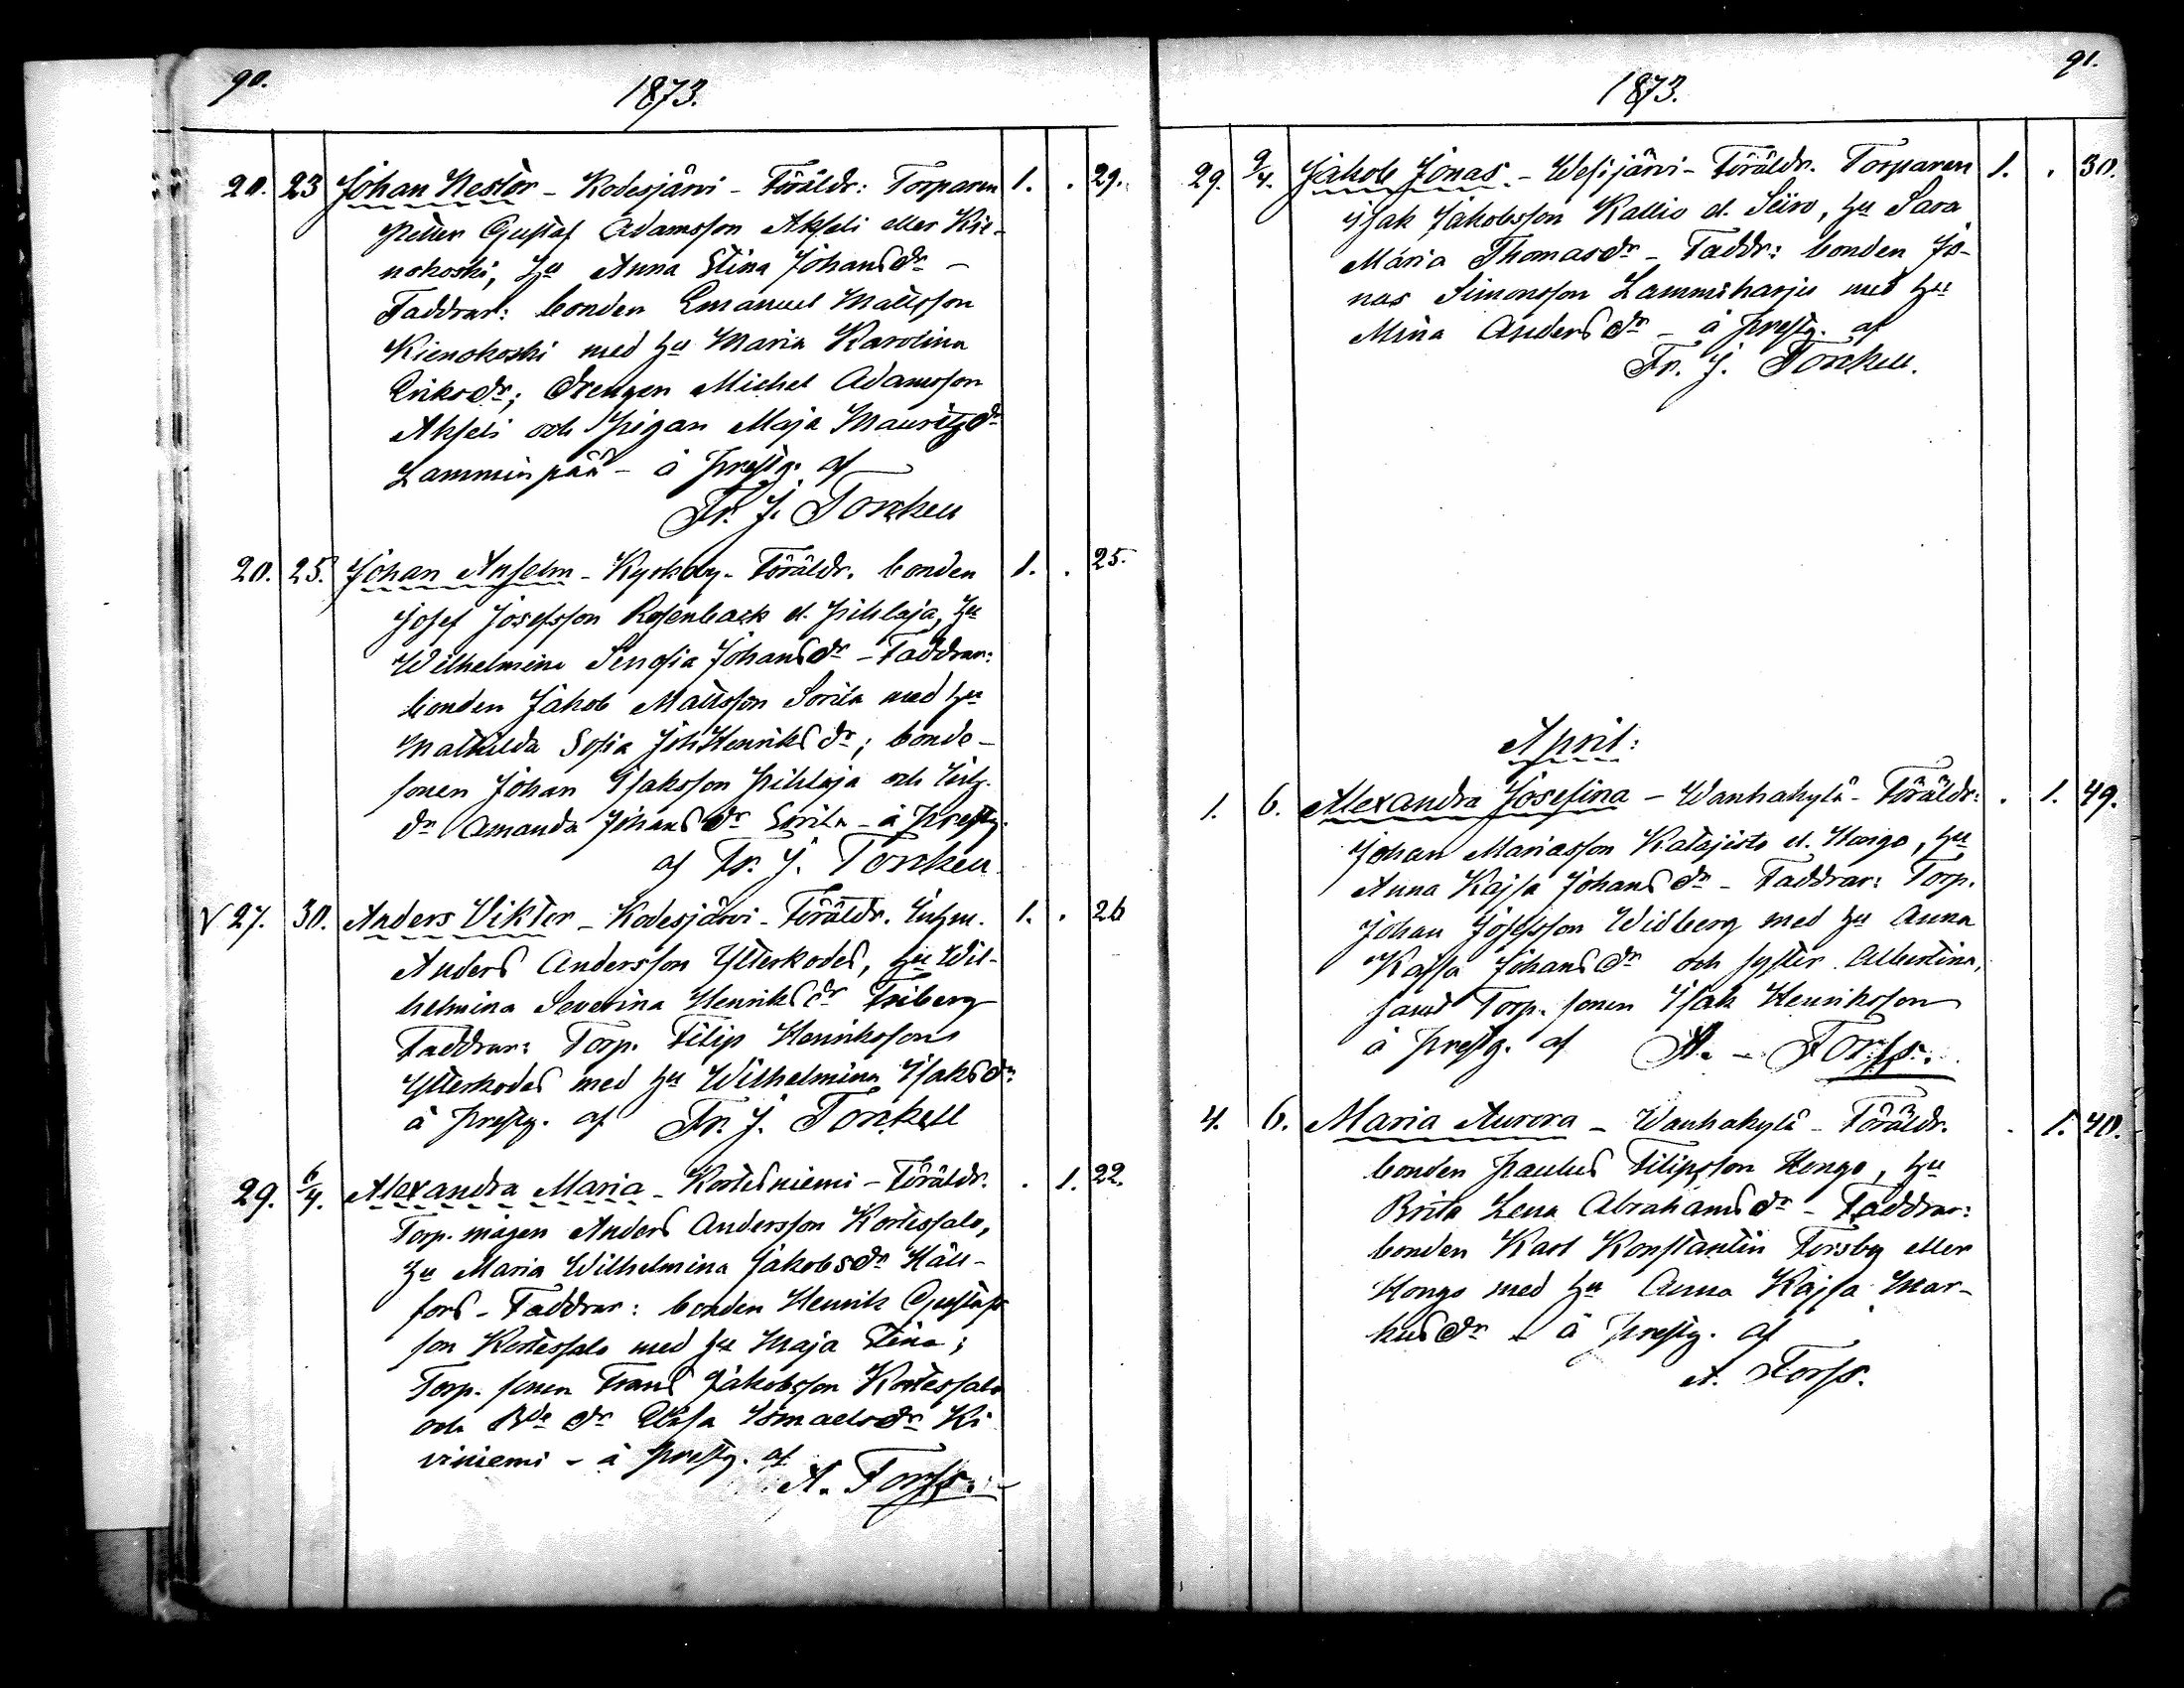 90.
1873.
20. 23 Johan Nestor - Kodesjärvi - Föräldr: Torparen 1. . 29.
Petter Gustaf Adamsson Akseli eller Kie-
nokoski, hu Anna Stina Johansdr -
Faddrar: bonden Emanuel Mattsson
Kienokoski med hu Maria Karolina
Eriksdr; Drengen Michel Adamsson
Akseli och Pigan Maja Mauritzdr
Lamminpää - å prestg. af
Fr. J. Torckell
20. 25. Johan Anselm - Kyrkoby - Föräldr. bonden 1. . 25.
Josef Josefsson Rosenback el. Pihlaja, hu
Wilhelmina Senofia Johansdr - Faddrar:
bonden Jakob Mattsson Sorila med hu
Mathilda Sofia Joh:Henriksdr; bonde-
sonen Johan Isaksson Pihlaja och Inh.
dr Amanda Johansdr Sorila - å Prestg.
af Fr. J. Torckell
V 27. 30. Anders Viktor - Kodesjärvi - Föräldr. Inhm. 1. . 26
Anders Andersson Ytterkodes, hu Wil-
helmina Severina Henriksdr Friberg
Faddrar: Torp. Filip Henriksson
Ytterkodes med hu Wilhelmina Isaksdr
å Prestg. af Fr. J. Torckell
29. 6/4. Alexandra Maria - Kortesniemi - Föräldr. . 1. 22.
Torp. mågen Anders Andersson Kortessalo,
hu Maria Wilhelmina Jakobsdr Häll-
fors - Faddrar: bonden Henrik Gustafs
son Kortessalo med hu Maja Stina;
Torp. sonen Frans Jakobsson Kortessalo
och Bde dr Eliisa Ismaelsdr Ki
viniemi - å prestg. af
A. Forss.
91.
1873.
29. 9/4. Jakob Jonas. - Wesijärvi - Föräldr. Torparen 1. . 30.
Isak Jakobsson Kallio el. Siiro, hu Sara
Maria Thomasdr - Faddr: bonden Jo-
nas Simonsson Lammiharju med hu
Mina Andersdr - å prestg. af
Fr. J. Torckell.
April:
1. 6. Alexandra Josefina - Wanhakylä - Föräldr: . 1. 49.
Johan Mariasson Katajisto el. Hongo, hu
Anna Kajsa Johansdr - Faddrar: Torp.
Johan Josefsson Widberg med hu Anna
Kajsa Johansdr och syster Albertina,
samt Torp. sonen Isak Henriksson
å prestg. af A. - Forss.
4. 6. Maria Aurora - Wanhakylä - Föräldr. . 1. 40.
bonden Paulus Filipsson Hongo, hu
Brita Lena Abrahamsdr - Faddrar:
bonden Karl Konstantin Forsby eller
Hongo med hu Anna Kajsa Mar-
kusdr - å prestg. af
A. Forss.